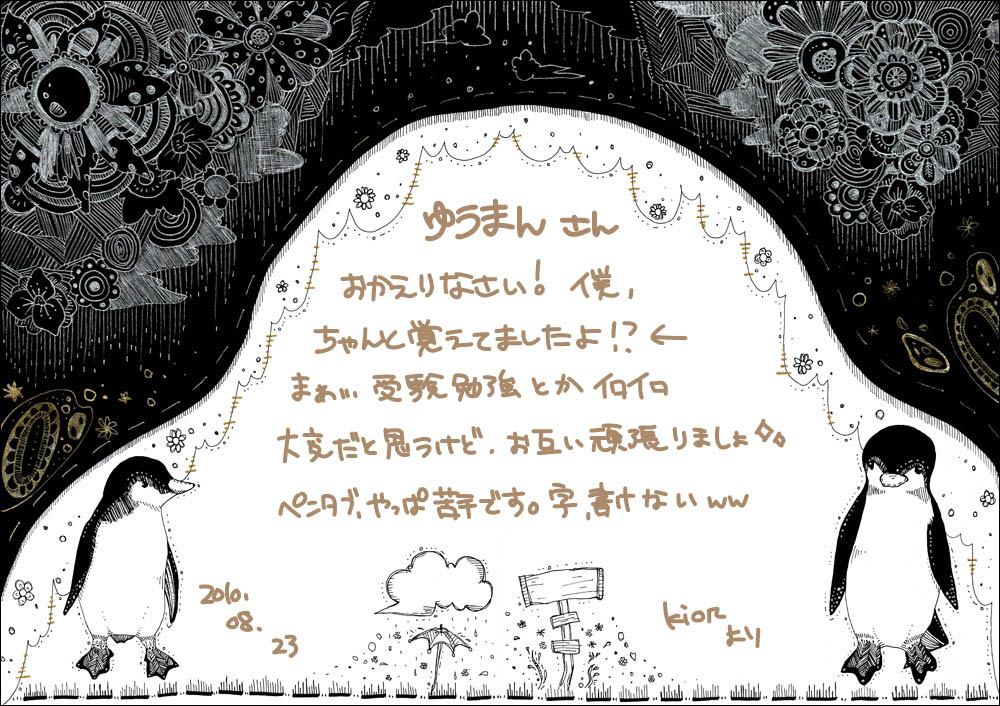 ゆうまん さん
おかえりなさい! 僕,
ちゃんと覚えてましたよ!? ←
まぁぃぃ 受験勉強とかイロイロ
大変だと思うけど、お互い頑張りましょ
ペンタブ、やっぱ苦手です。字、書けないww
2010.
08.
23
kior
より